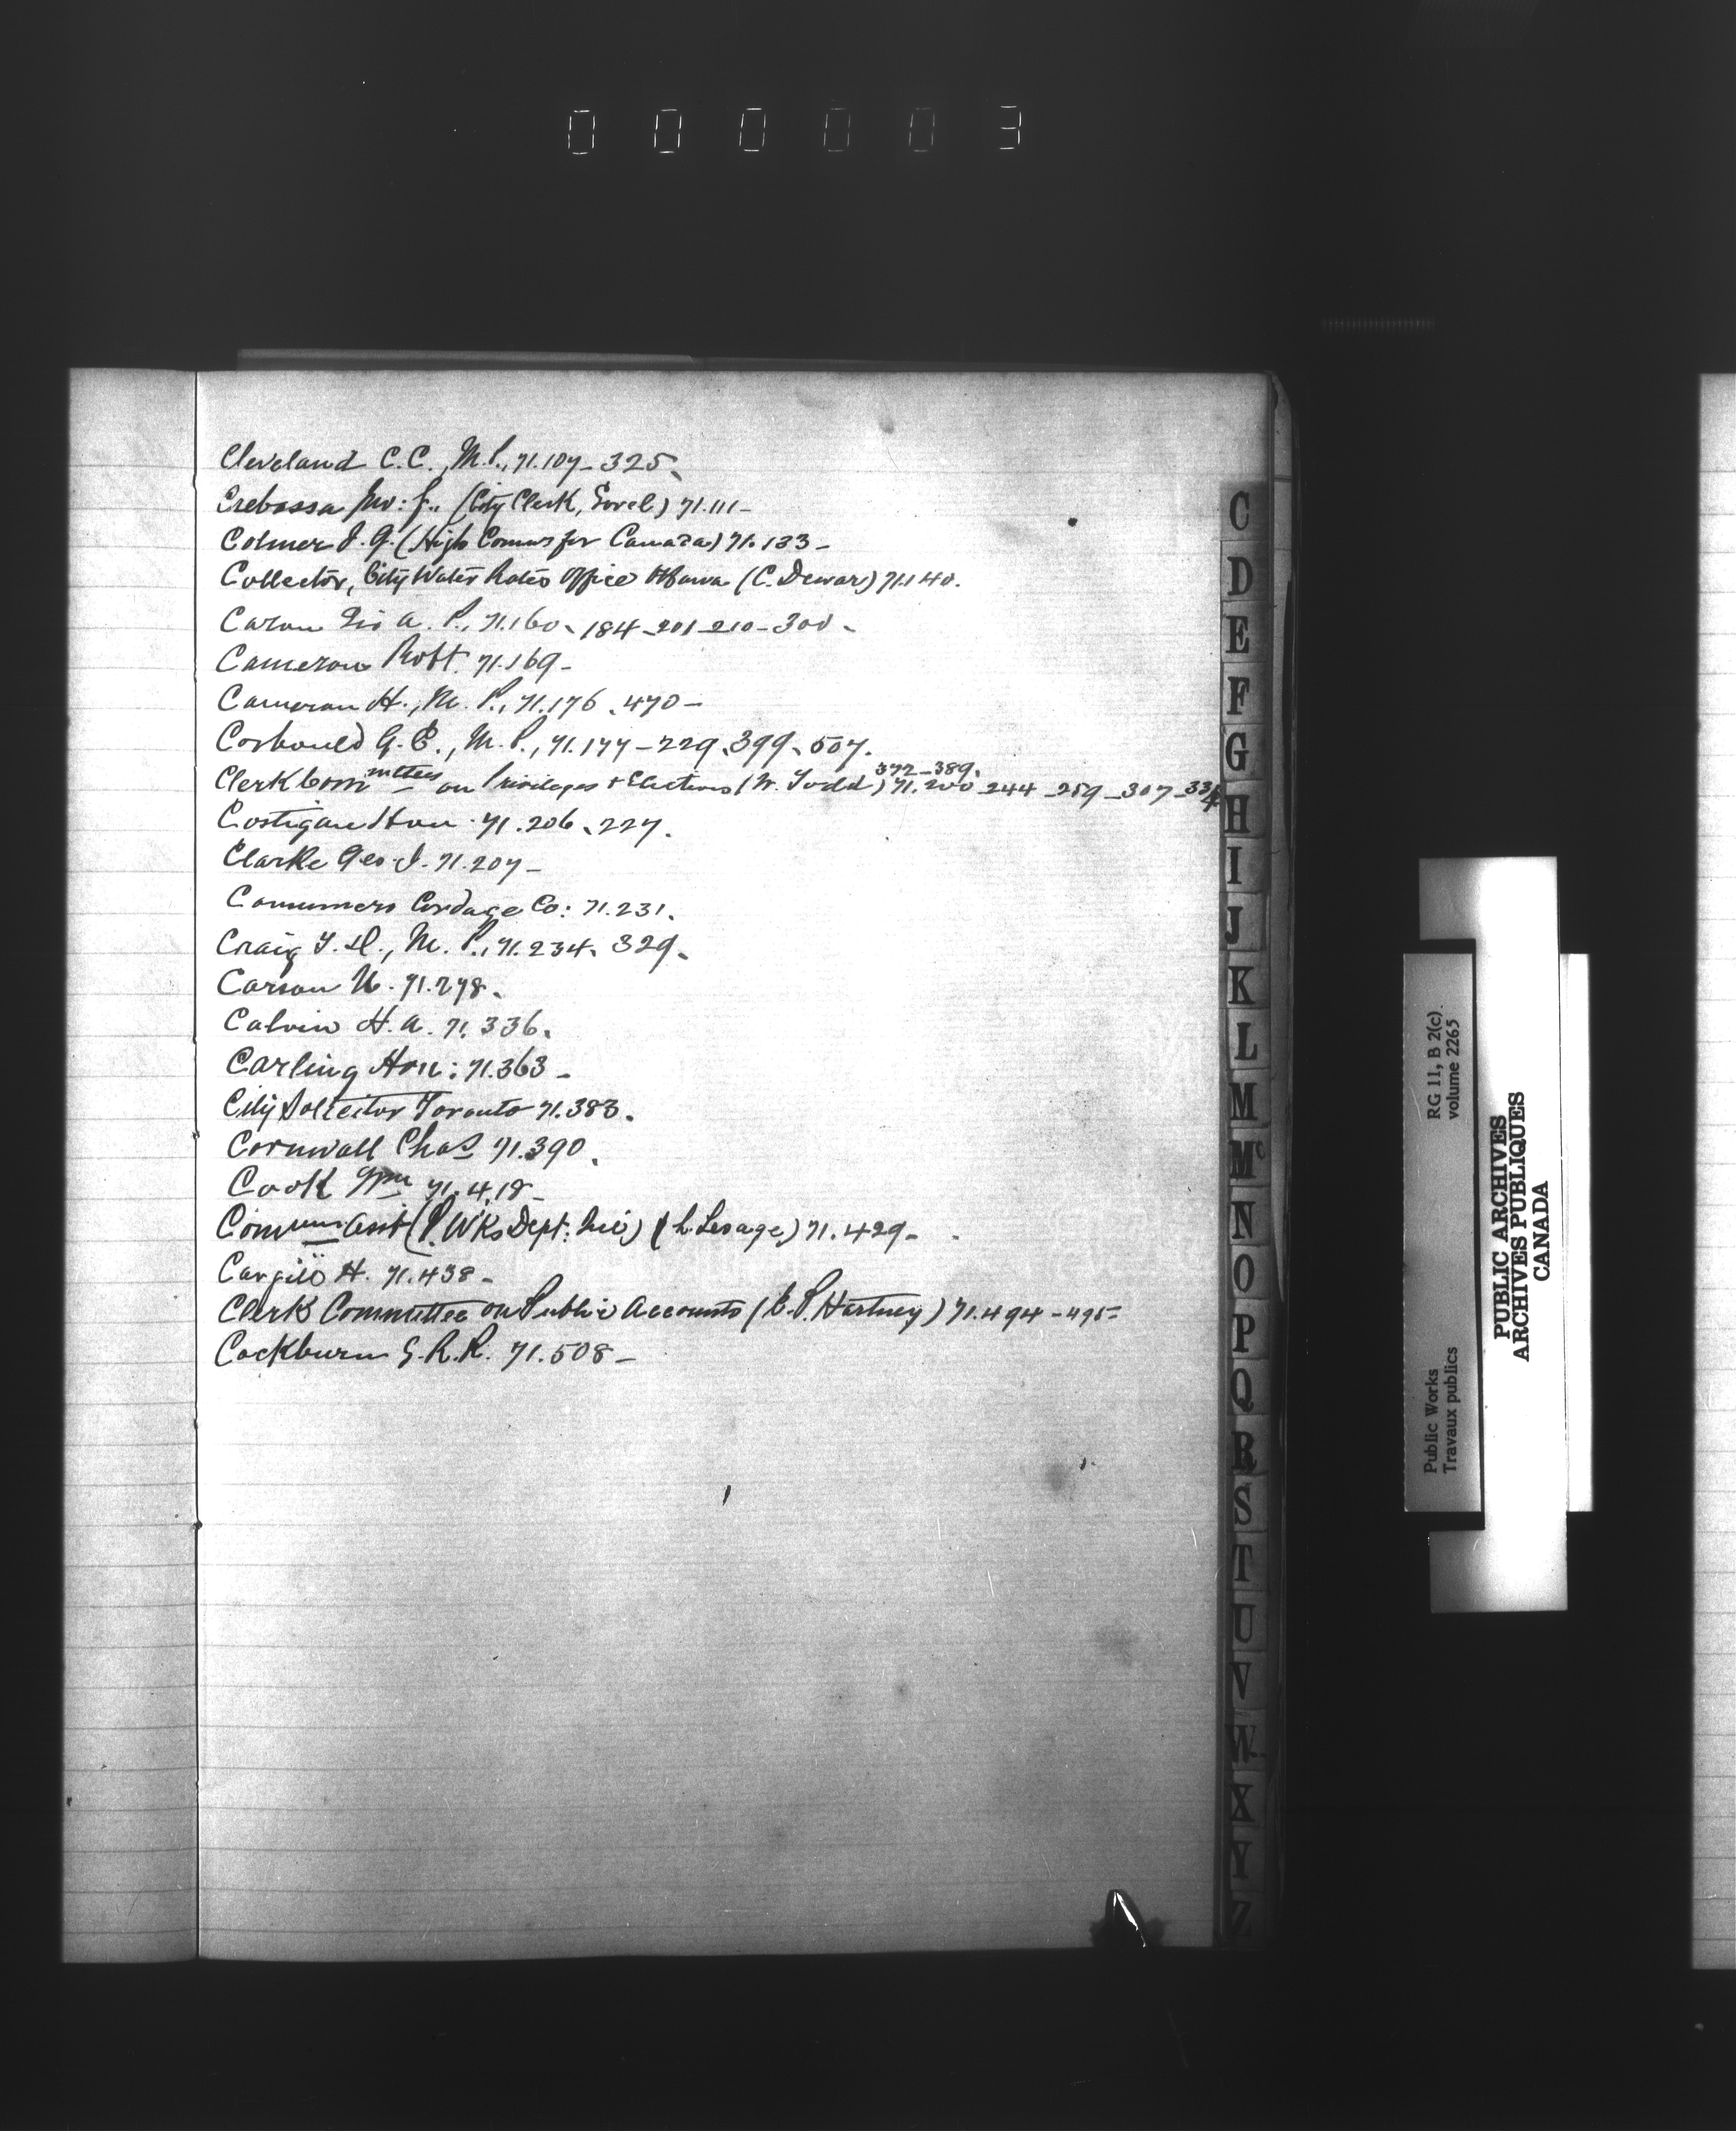 000003
Cleveland C.C., M.P., 71.107_325.
Crebassa Jno: f.. (City Clerk, Sorel) 71.111_
Colmer J.G. (High Commr for Canada) 71.133_
Collector, City Water Rates Office Ottawa (C. Dewar) 71.140.
Caron Sir A. P., 71.160. 184_201_210_300_
Cameron Robt. 71.169_
Cameron H., M. P., 71.176. 470_
Corbould G. E., M. P., 71.177_229. 399. 507.
372_389.
Clerk Committees on Privileges & Elections (W. Todd) 71.200_244_259_307_334
Costigan Hon. 71.206. 227.
Clarke Geo. J. 71.207_
Consumers Cordage Co: 71.231.
Craig T. D., M. P., 71.234. 329.
Carson W. 71.278.
Calvin H. A. 71.336.
Carling Hon: 71.363_
City Solicitor Toronto 71.383.
Cornwall Chas 71.390.
Cook Wm 71.418_
Commr Asst (P. Wks Dept: Que) (L. Lesage) 71.429_
Cargill H. 71.438_
Clerk Committee on Public Accounts (E. P. Hartney) 71.494_495_
Cockburn G.R.R. 71.508_
C
D
E
F
G
H
I
J
K
L
M
Mc
N
O
P
Q
R
S
T
U
V
W
X
Y
Z
Public Works RG 11, B 2(c).
Travaux publics volume 2265
PUBLIC ARCHIVES
ARCHIVES PUBLIQUES
CANADA